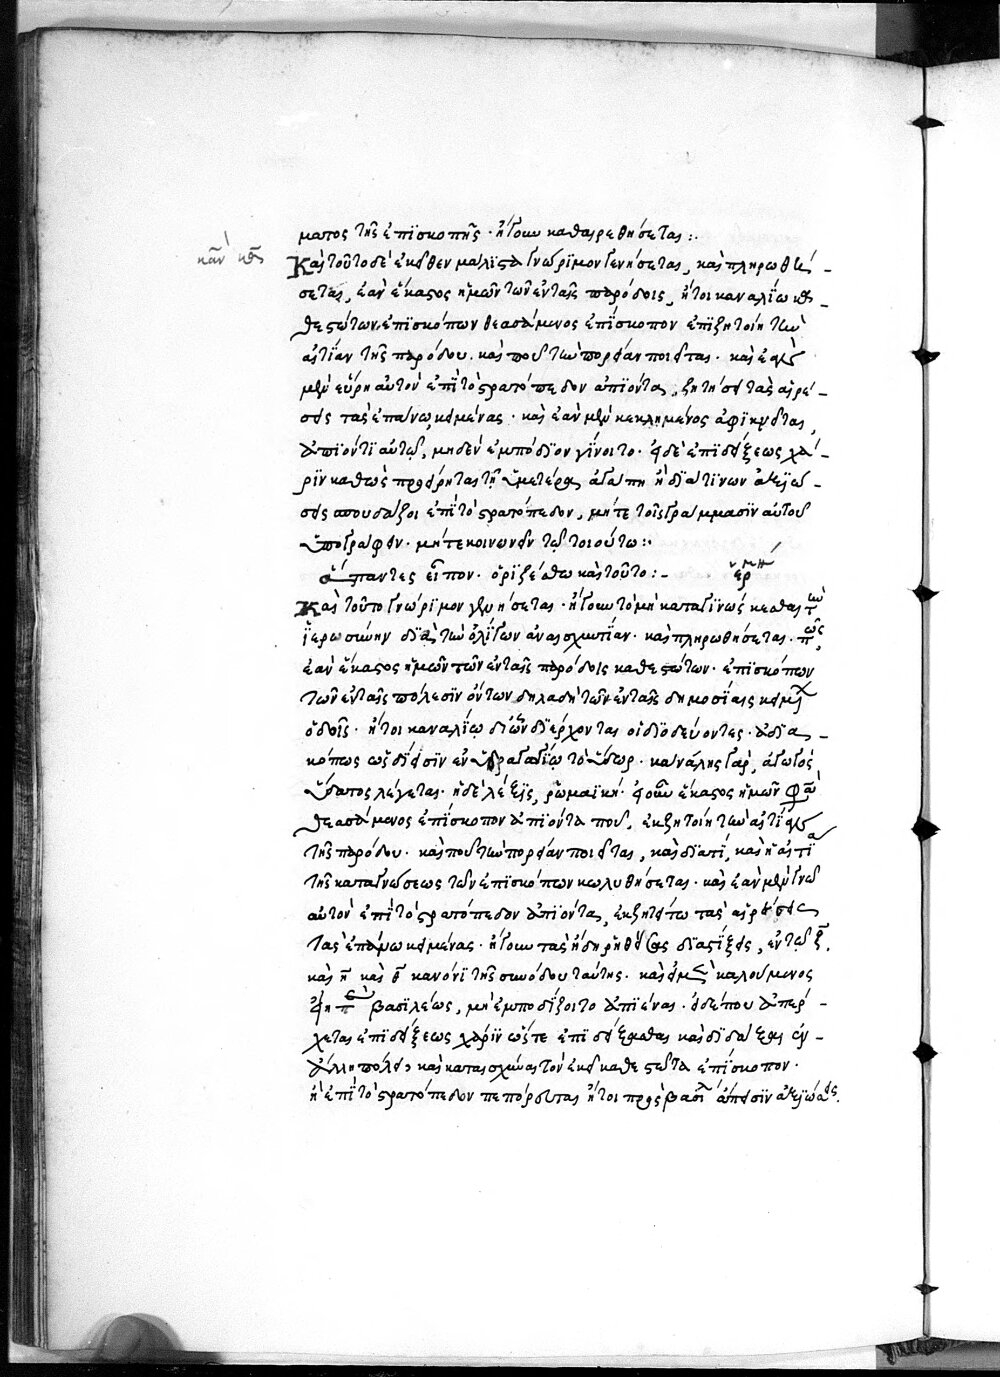 ματος τῆς ἐπϊσκοπῆς· ἤγουν καθαιρεθήσεται:·
Καὶ τοῦτο δὲ ἐκεῖθεν μάλϊστα γνώρϊμον γενήσεται, καὶ πληρωθή-
σεται, ἐὰν ἕκαστος ἡμῶν τῶν ἐν ταῖς παρόδοις, ἤτοι καναλίω κα-
θεστώτων, ἐπϊσκόπων θεασάμενος ἐπίσκοπον ἐπϊζητοίη τὴν
αἰτΐαν τῆς παρόδου. καὶ ποῦ τὴν πορείαν ποιεῖται. καὶ ἐὰν
μὲν εὕρῃ αὐτὸν ἐπὶ τὸ στρατόπεδον ἀπϊόντα, ζητήσει τὰς αἱρέ-
σεις τὰς ἐπάνω κειμένας. καὶ ἐὰν μὲν κεκλημένος ἀφϊκνεῖται,
ἀπϊόντϊ αὐτῷ, μηδὲν ἐμπόδϊον γΐνοιτο. εἰ δὲ ἐπϊδείξεως χά-
ρϊν καθὼς προείρηται τῇ ὑμετέρᾳ ἀγάπῃ ἢ διά τϊνων ἀξϊώ-
σεις σπουδάζοι ἐπὶ τὸ στρατόπεδον, μήτε τοῖς γράμμασϊν αὐτοῦ
ὑπογράφειν. μήτε κοινωνεῖν τῷ τοιούτω:·
ἅπαντες εἶπον. ὁρϊζέσθω καὶ τοῦτο:- ἑρμη
Καὶ τοῦτο γνώρϊμον γενήσεται. ἤγουν τὸ μὴ καταγϊνώσκεσθαι τὴν
ἱερωσύνην διὰ τὴν ὀλίγων ἀναισχυντΐαν. καὶ πληρωθήσεται. πῶς,
ἐὰν ἕκαστος ἡμῶν τῶν ἐν ταῖς παρόδοις καθεστώτων. ἐπϊσκόπων
τῶν ἐν ταῖς πόλεσϊν ὄντων δηλαδὴ τῶν ἐν ταῖς δημοσίαις κειμέν
ὁδοῖς. ἤτοι καναλΐω δι' ὧν διέρχονται οἱ διοδεύοντες. ἀδϊα-
κόπως ὡς δϊεῖσϊν ἐν ὑδραγωγΐω τὸ ὕδωρ. κανάλης γὰρ, ἀγωγὸς
ὕδατος λέγεται. ἡ δὲ λέξϊς, ῥωμαϊκή. εἰ οὖν ἕκαστος ἡμῶν
θεασάμενος ἐπίσκοπον ἀπϊόντα που, ἐκζητοίη τὴν αἰτίαν
τῆς παρόδου. καὶ ποῦ τὴν πορείαν ποιεῖται, καὶ δϊατί, καὶ ἡ αἰτία
τῆς καταγνώσεως τῶν ἐπϊσκόπων κωλυθήσεται. καὶ ἐὰν μὲν γνῷ
αὐτὸν ἐπὶ τὸ στρατόπεδον ἀπϊόντα, ἐκζητείτω τὰς αἱρέσεις
τὰς ἐπάνω κειμένας. ἤγουν τὰς ἤδη ῥηθείσας δϊατάξεις, ἐν τῷ ζ,
καὶ η καὶ θ κανόνϊ τῆς συνόδου ταύτης. καὶ εἰ μὲν καλούμενος
εἴη παρὰ βασϊλέως, μὴ ἐμποδίζοιτο ἀπϊέναι. εἰ δέ που ἀπέρ-
χεται ἐπϊδείξεως χάρϊν ὥστε ἐπϊδείξασθαι καὶ δϊδάξαι ἐν
ἄλλῃ πόλει, καὶ καταισχῦναι τὸν ἐκεῖ καθεστῶτα ἐπίσκοπον.
ἢ ἐπὶ τὸ στρατόπεδον πεπόρευται ἤτοι πρὸς βασιλ ἄπεισϊν ἀξϊώσεις.